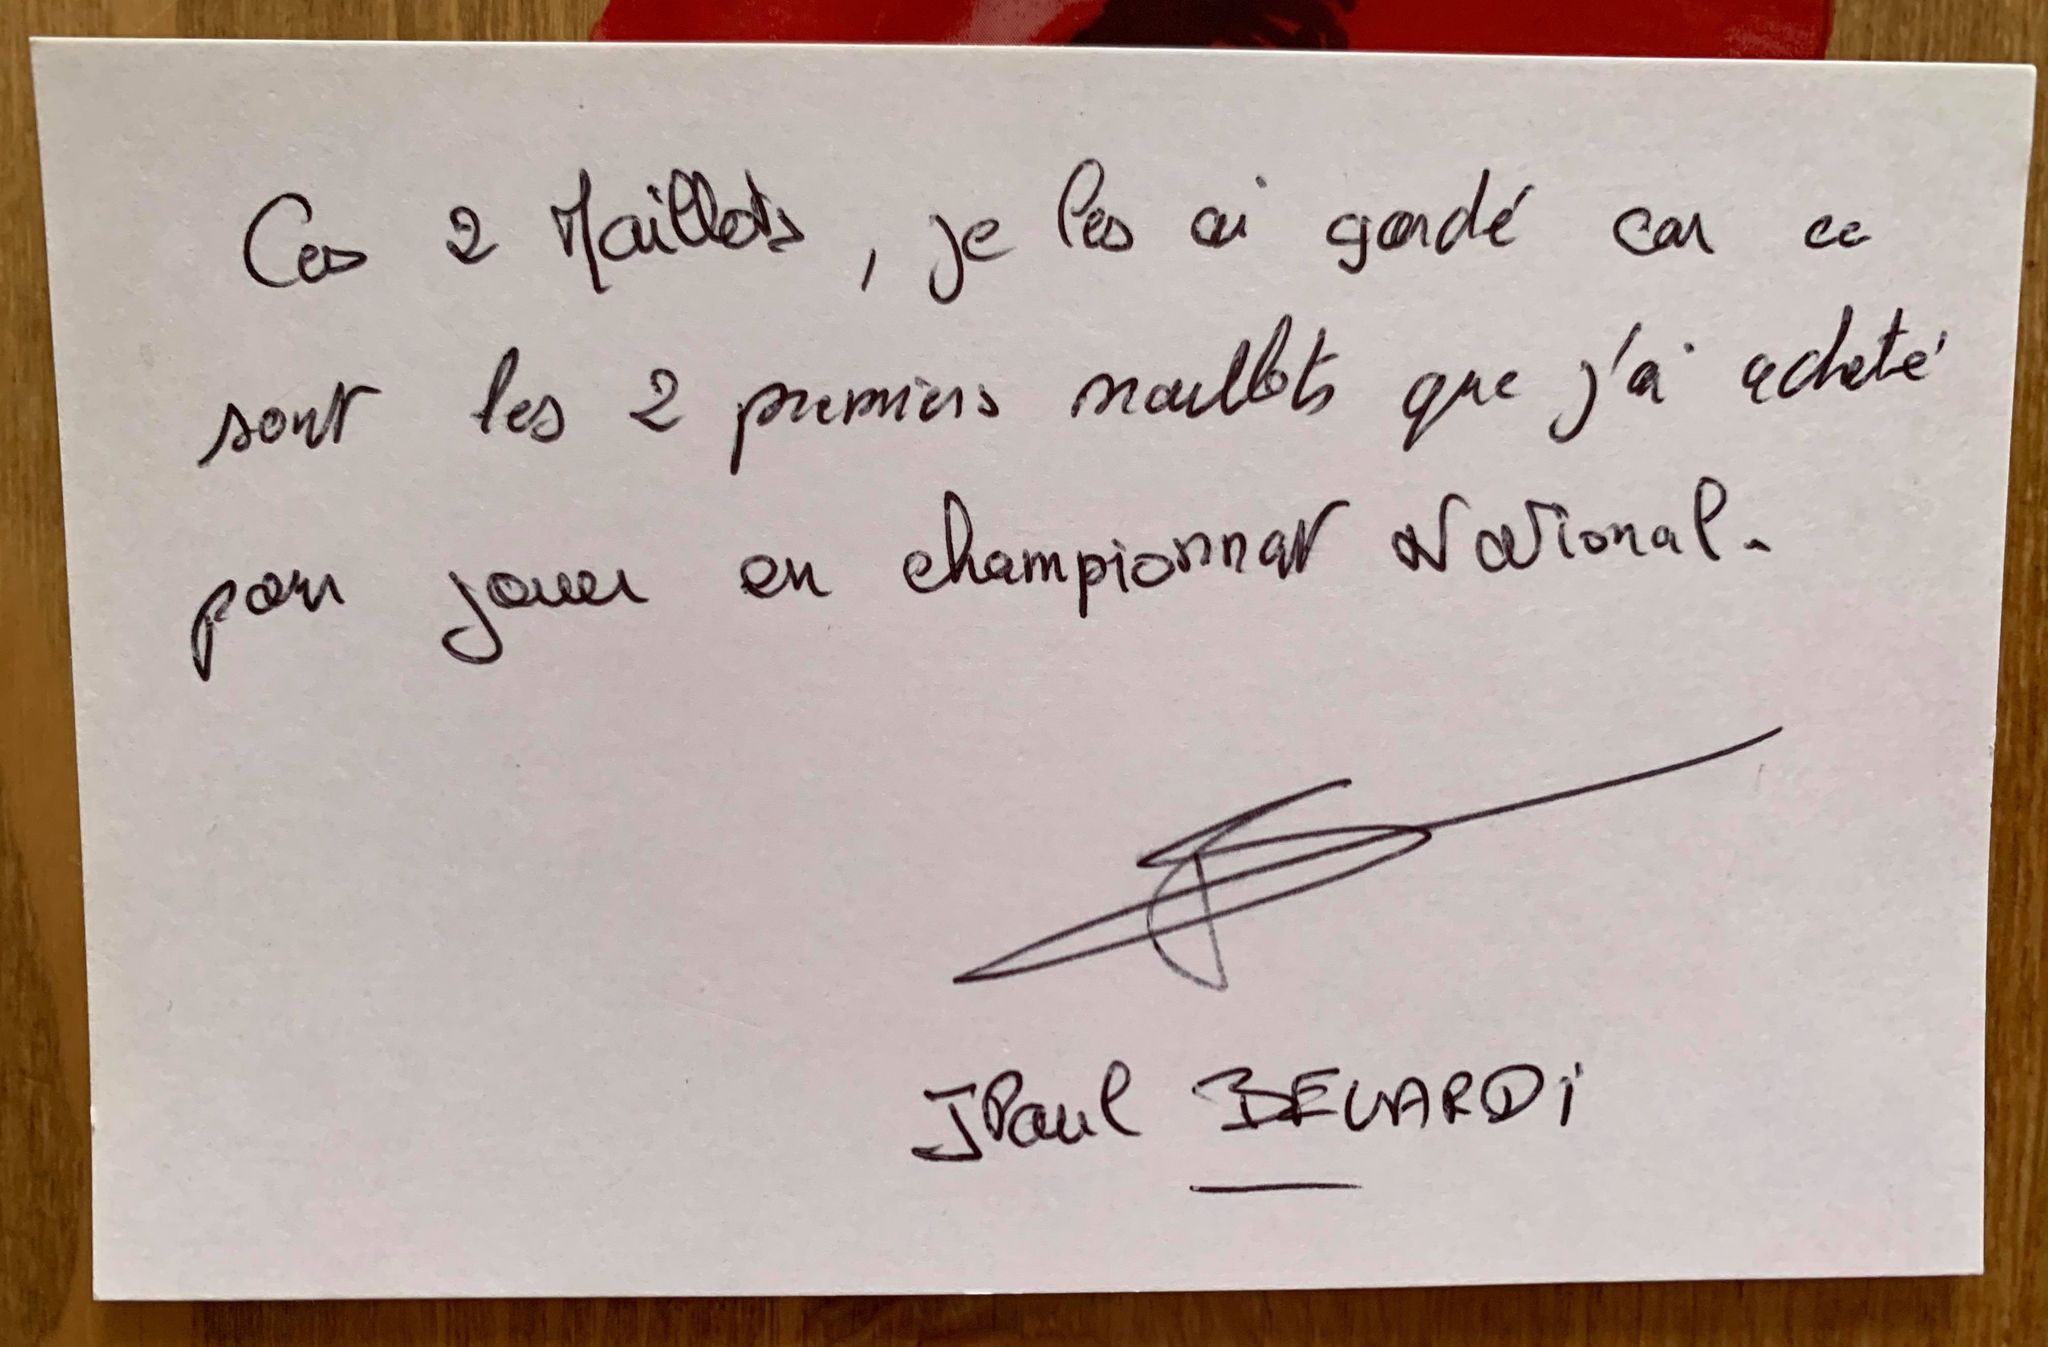 Ces 2 Maillots, je les ai gardé car ce
sont les 2 premiers maillots que j'ai acheté
pour jouer en championnat National.
JPaul BELARDI